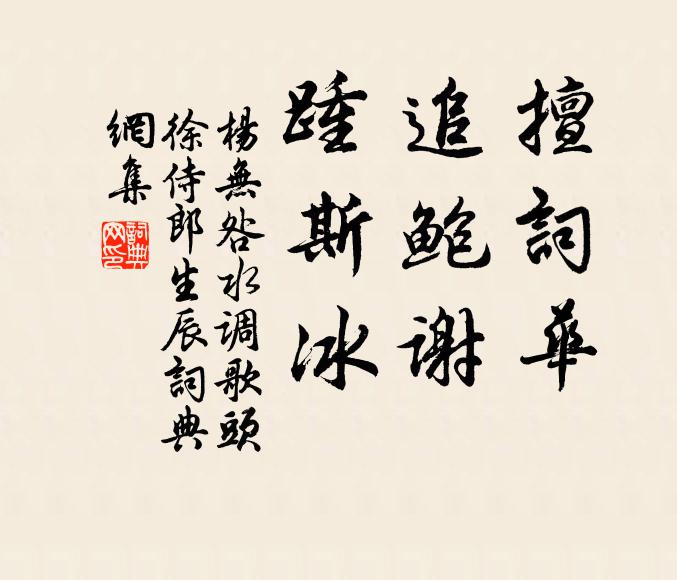 擅詞華
追鲍谢
踵斯冰
楊無咎水调歌頭
徐侍郎生辰詞典
網集
詞典网印